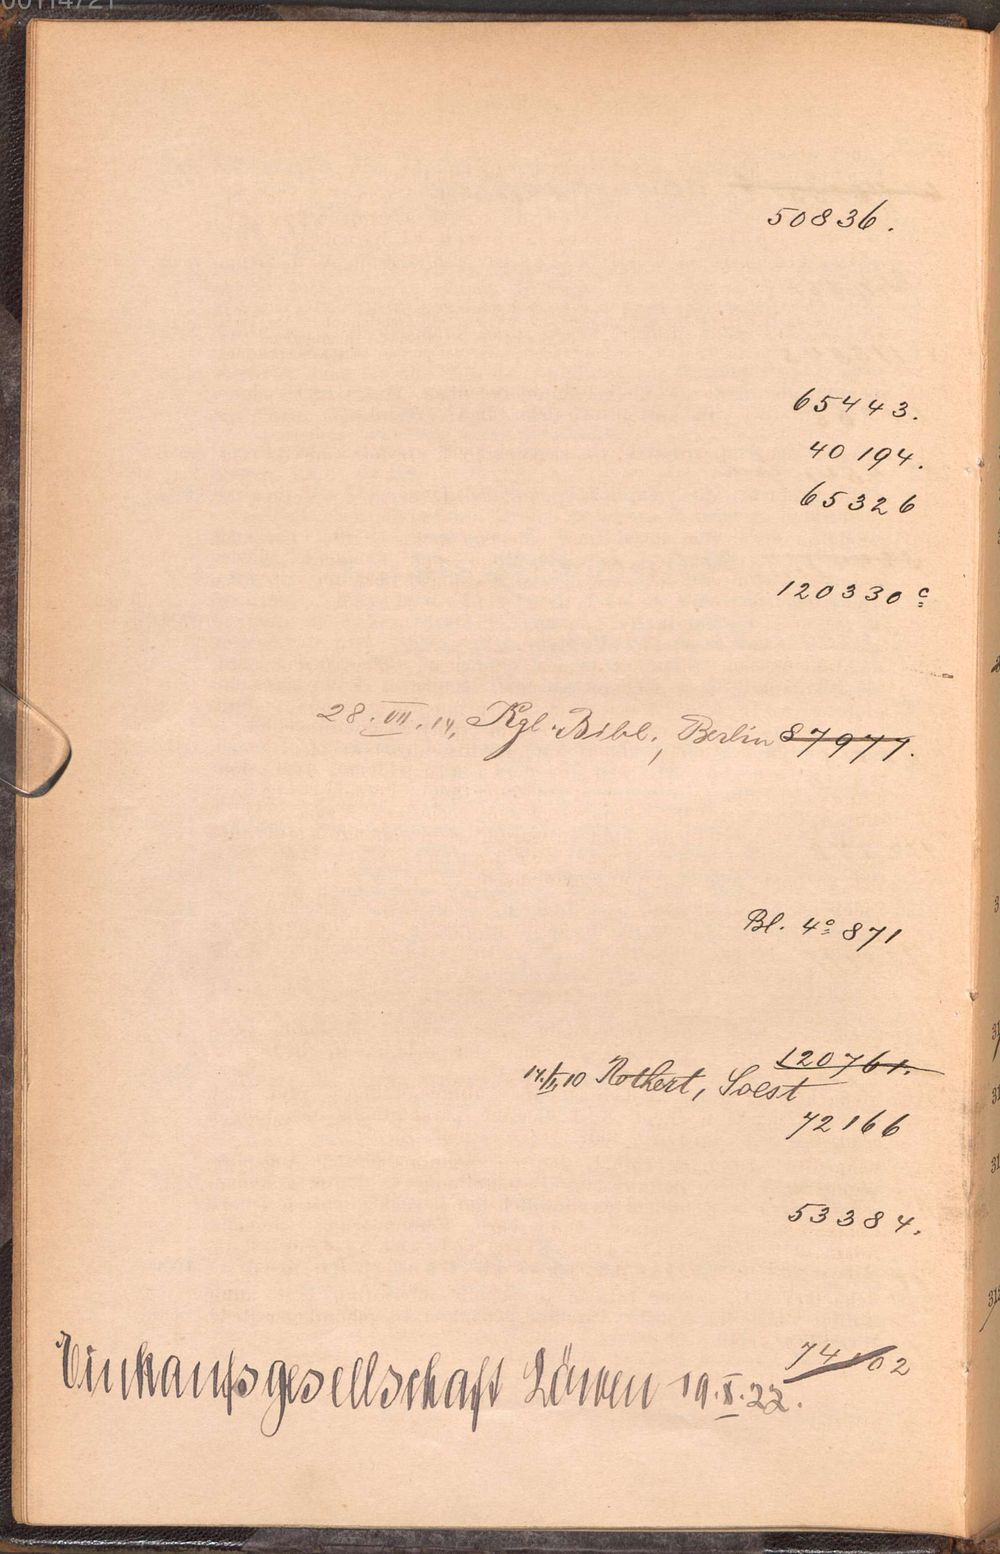 50836.
65443.
40194.
65326
120330 c
28. VII. 14, Kgl. Bibl., Berlin 87977.
Bl. 4° 871
120761.
Rothert, Soest
72166
53384.
74102
Einkaufsgesellschaft Löwen 19. X. 22.